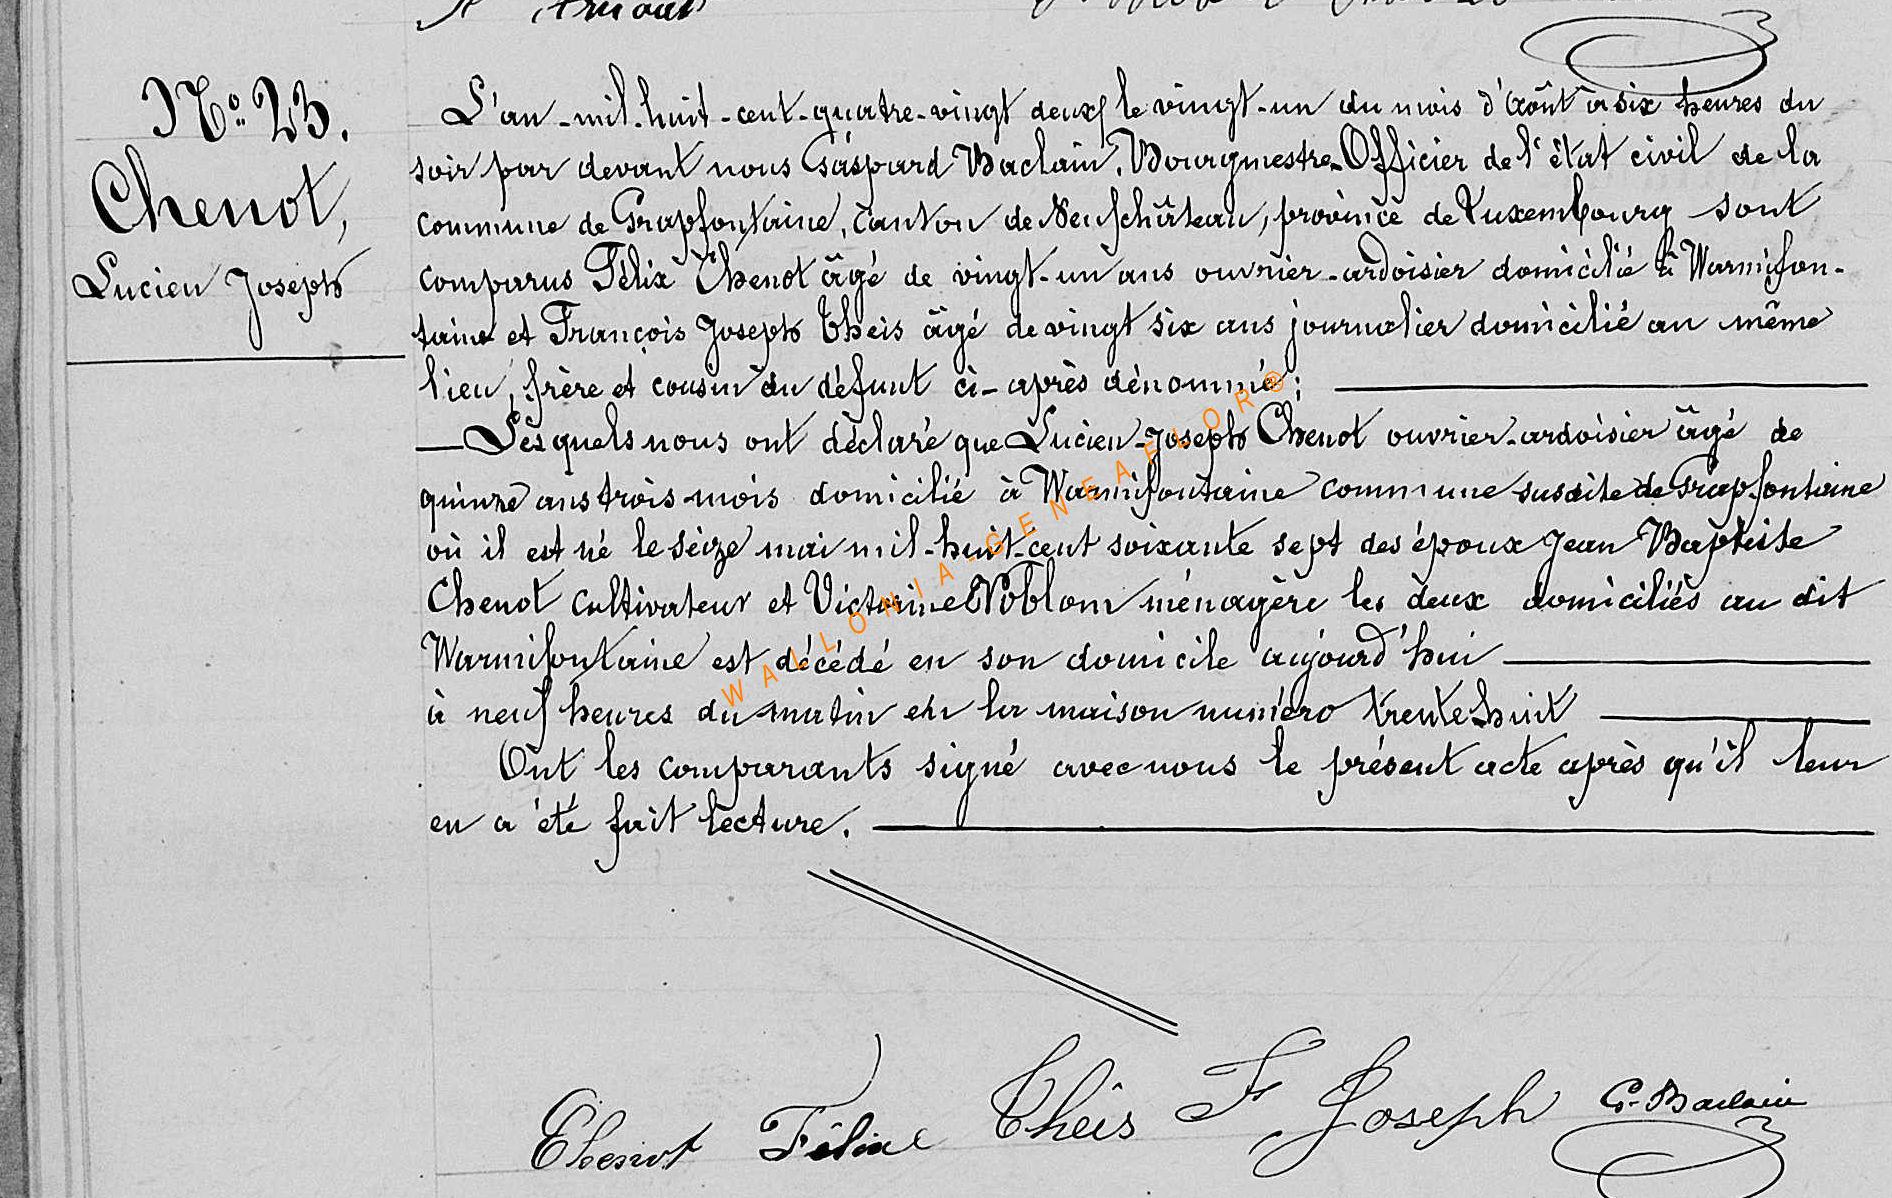 N° 23.
Chenot,
Lucien Joseph
L'an-mil-huit-cent-quatre-vingt deux le vingt-un du mois d'Août à six heures du
soir par devant nous Gaspard Baclain, Bourgmestre-Officier de l'état civil de la
commune de Grapfontaine, Canton de Neufchâteau, province de Luxembourg sont
comparus Félix Chenot âgé de vingt-un ans ouvrier-ardoisier domicilié à Warmifon-
taine et François Joseph Theis âgé de vingt six ans journalier domicilié au même
lieu, frère et cousin du défunt ci-après dénommé;
Lesquels nous ont déclaré que Lucien-Joseph Chenot ouvrier-ardoisier âgé de
quinze ans trois mois domicilié à Warmifontaine commune susdite de Grapfontaine
où il est né le seize mai mil-huit-cent soixante sept des époux Jean Baptiste
Chenot Cultivateur et Victorine Noblom ménagère les deux domiciliés au dit
Warmifontaine est décédé en son domicile aujourd'hui
à neuf heures du matin en la maison numéro trente huit
Ont les comparants signé avec nous le présent acte après qu'il leur
en a été fait lecture.
Chenot Félix Theis F Joseph G. Baclain
WALLONIA-GENEAFLOR®